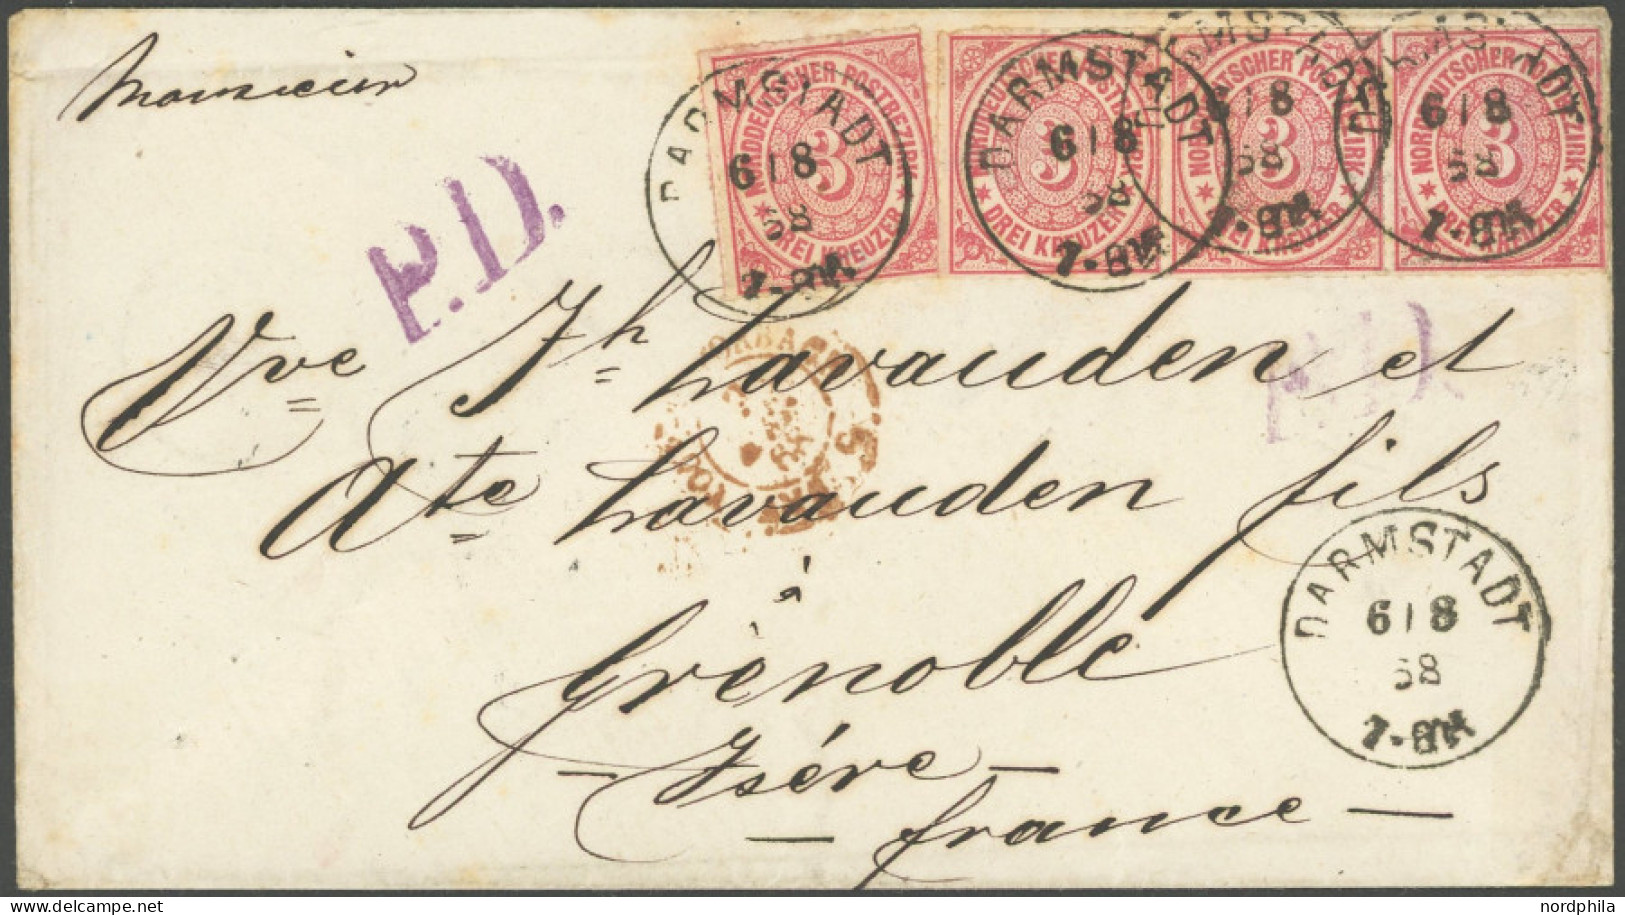 Monsieur
P.D.
NORDDEUTSCHER POSTBEZIRK
3
DREI KREUZER
NORDDEUTSCHER POSTBEZIRK
3
DREI KREUZER
NORDDEUTSCHER POSTBEZIRK
3
DREI KREUZER
NORDDEUTSCHER POSTBEZIRK
3
DREI KREUZER
DARMSTADT
6 | 8
68
7-8M
DARMSTADT
6 | 8
68
7-8M
DARMSTADT
6 | 8
68
7-8M
DARMSTADT
6 | 8
68
7-8M
Vve Jh Lavauden et
P.D.
Ate Lavauden fils
à
Grenoble
DARMSTADT
6 | 8
68
7-8M
- Isére -
- France -
www.ehstamps.com
nordphila